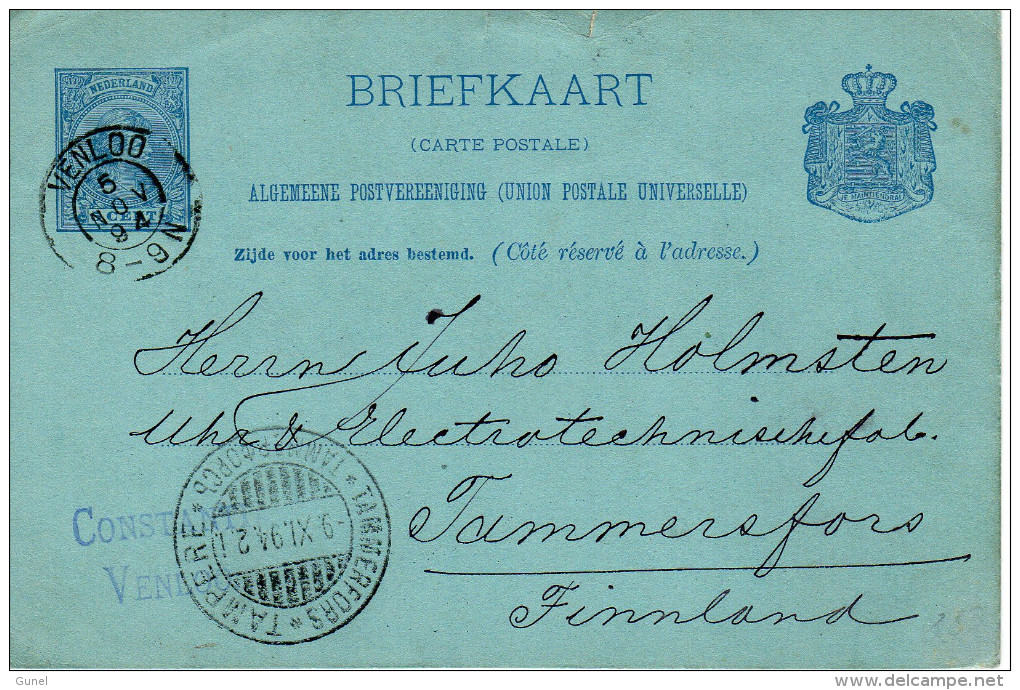 NEDERLAND
CENT
VENLOO
5 NOV 94
8-9N
BRIEFKAART
(CARTE POSTALE)
ALGEMEENE POSTVEREENIGING (UNION POSTALE UNIVERSELLE)
Zijde voor het adres bestemd. (Côté réservé à l'adresse.)
JE MAINTIENDRAI
Herrn Juho Holmsten
Uhr & Electrotechnischefab.
Tammersfors
Finnland
CONSTAN
VENLO
TAMMERFORS * TAMPERE *
-9.XI.94.2.I.
25
Gunel
delcampe.net